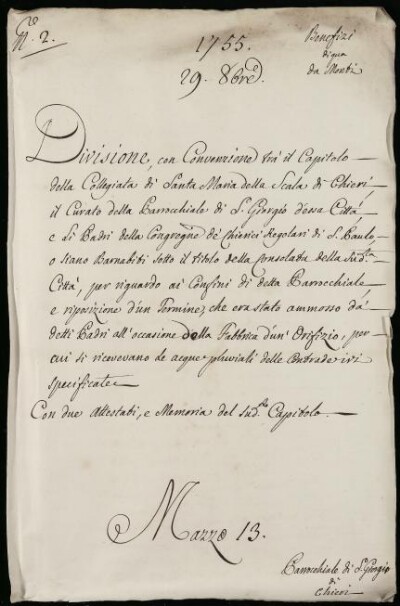 N.ro 2.
1755.
29. 8bre
Benefizi
di qua
da Monti
Divisione, con Convenzione trà il Capitolo
della Collegiata di Santa Maria della Scala di Chieri,
il Curato della Parrochiale di S. Giorgio d'essa Città,
e li Padri della Congregne de' Chierici Regolari di S. Paulo,
o siano Barnabiti sotto il titolo della Consolata della sudta
Città, per riguardo ai Confini di detta Parrochiale,
e riposizione d'un Termine, che era stato ammosso da'
detti Padri all'occasione della Fabbrica d'un' Orifizio, per
cui si ricevevano le acque pluviali delle Contrade ivi
specificate
Con due Attestati, e Memoria del sud.to Capitolo.
Mazzo 13.
Parrochiale di S. Giorgio
di
Chieri